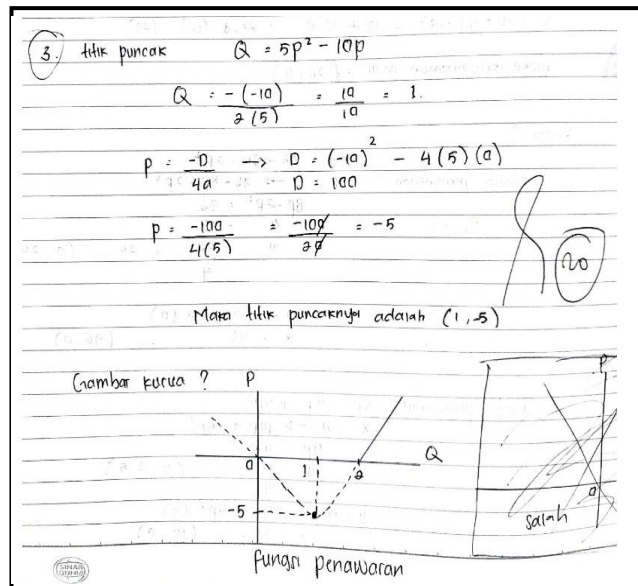 3. titik puncak Q = 5p² - 10p
Q = -(-10) / 2(5) = 10/10 = 1.
P = -D/4a → D = (-10)² - 4(5)(0)
D = 100
P = -100/4(5) = -100/20 = -5
20
Maka titik puncaknya adalah (1,-5)
Gambar kurva ? P
P
0 1 2 Q
0
-5
salah
fungsi penawaran
SINAR